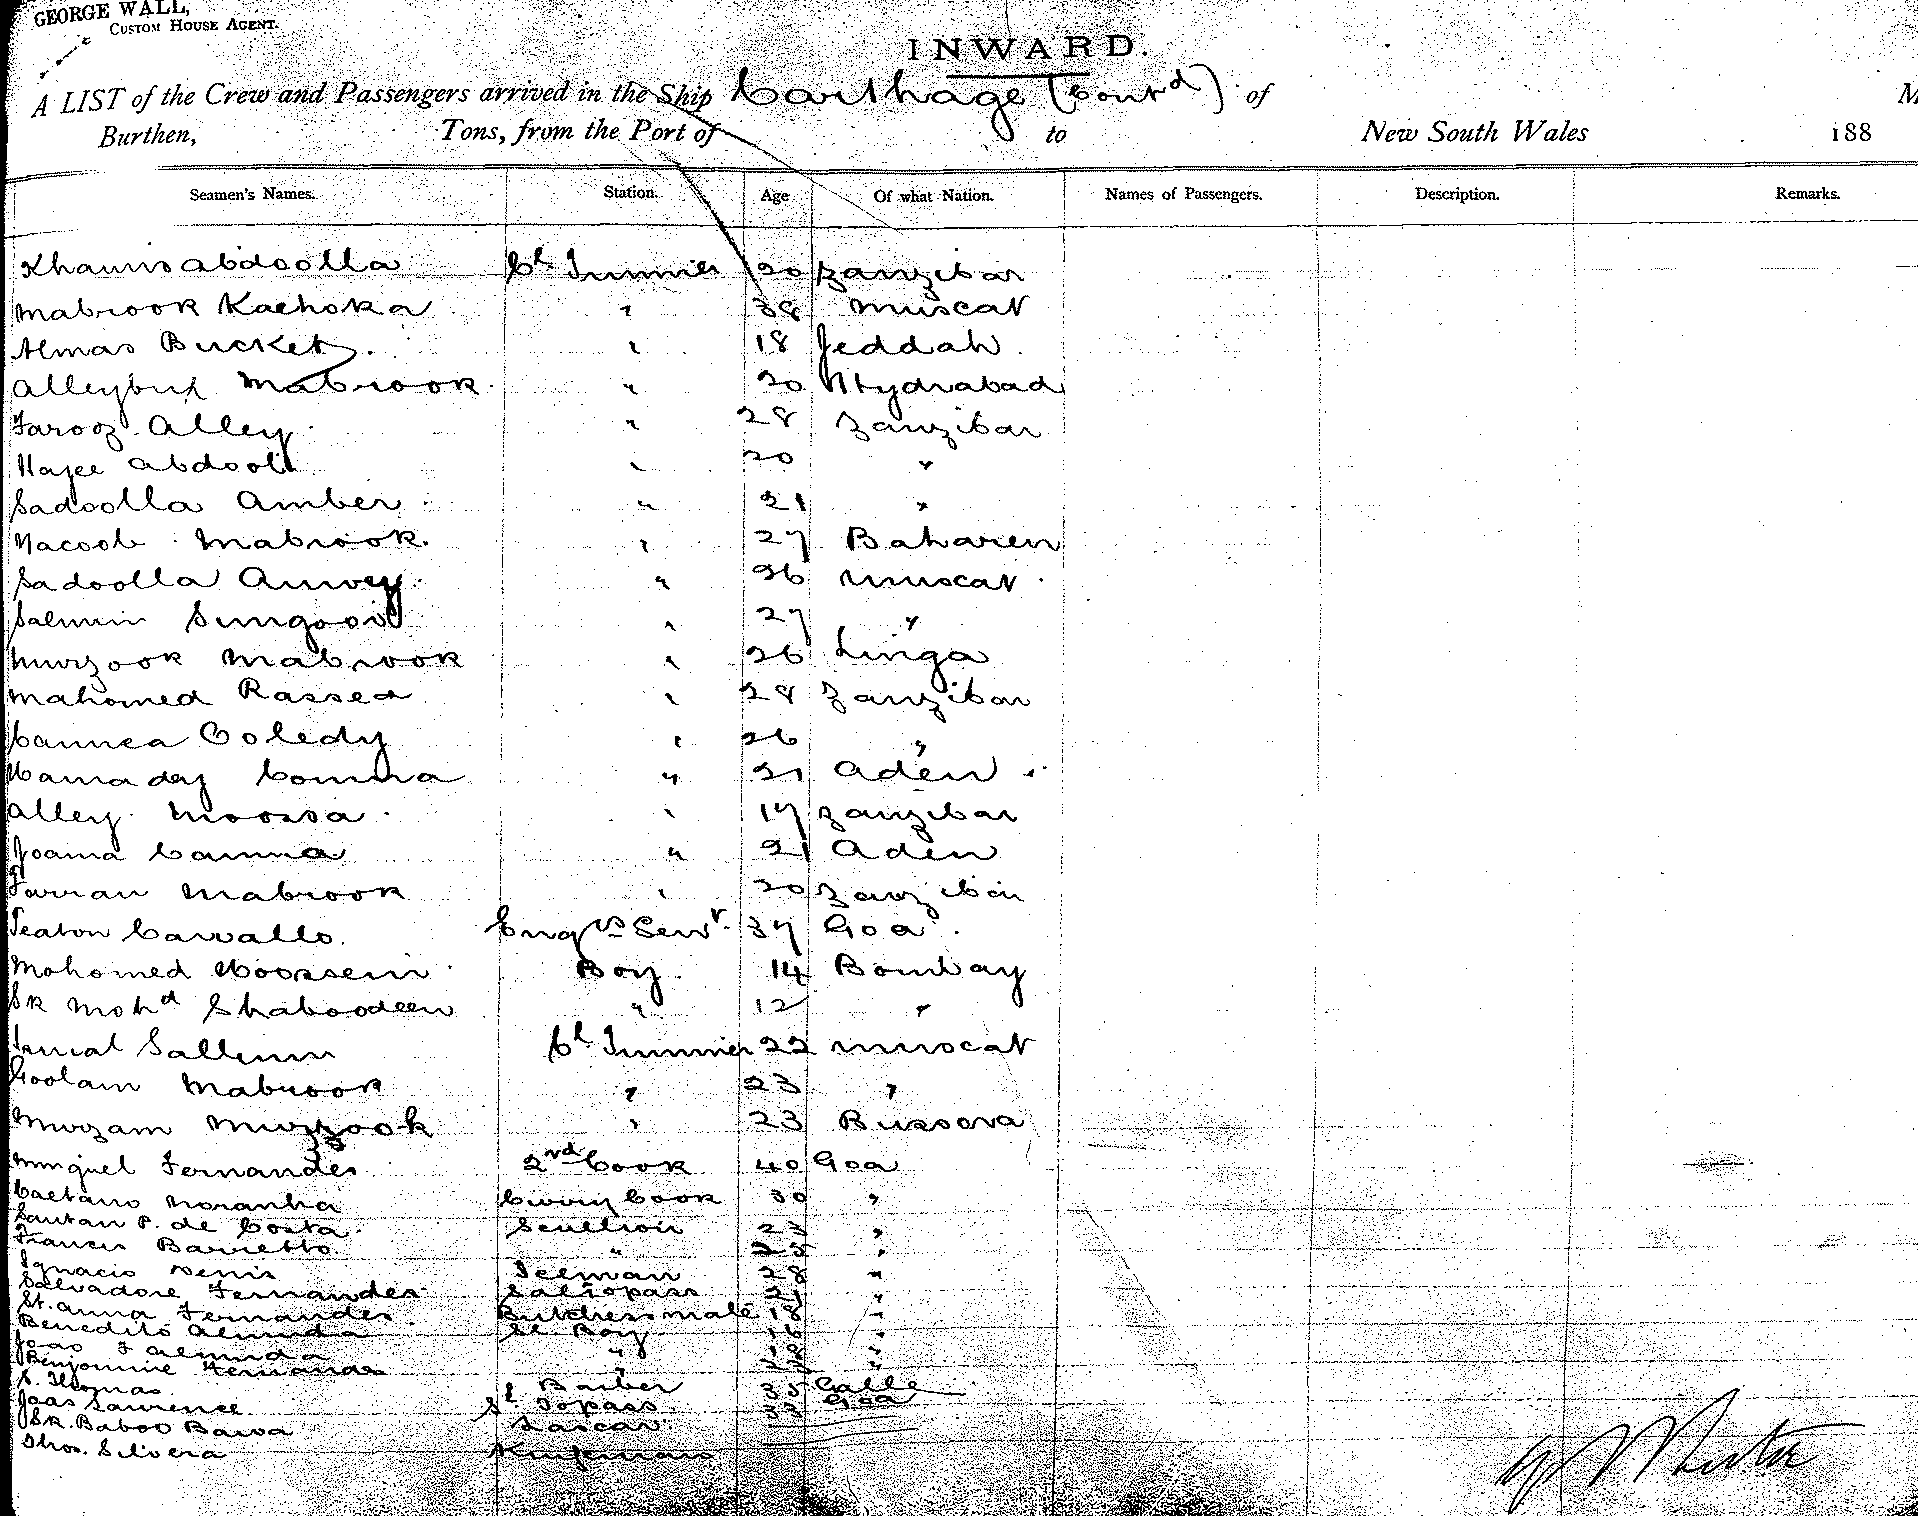 GEORGE WALL,
CUSTOM HOUSE AGENT.
INWARD.
A LIST of the Crew and Passengers arrived in the Ship Carthage (Contd) of M
Burthen, Tons, from the Port of to New South Wales 188
Seamen's Names. Station. Age Of what Nation. Names of Passengers. Description. Remarks.
Khamis Abdoolla Cl Trimmer 20 Zanzibar
Mabrook Kachoka " 38 Muscat
Almas Bucket. " 18 Jeddah
Alleybux Mabrook " 20 Hydrabad
Farooz Alley " 28 Zanzibar
Hajee Abdool " 20 "
Sadoolla Amber " 21 "
Yacoob Mabrook. " 27 Baharen
Sadoolla " 26 Muscat
Salmin Sungoor " 27 "
Murzook Mabrook " 26 Linga
Mahomed Rassed " 28 Zanzibar
26 "
Hamaday Comma " 21 Aden
Alley Moossa " 17 Zanzibar
Joama Camma " 21 Aden
Farran Mabrook " 20 Zanzibar
Carvallo. Engrs Servt. 37 Goa
Mohomed Hoossein Boy 14 Bombay
Sk Mohd Shaboodeen " 12 "
Sallimin Cl Trimmer 22 Muscat
Goolam Mabrook " 23 "
Murzam Murzook " 23 Bussora
Minguel Fernandes 2nd Cook 40 Goa
Caetano Noranha Curry Cook 30 "
Santan P. de Costa Scullion 23 "
Francis Barretto " "
Ignacio Denis 28 "
Salvadore Fernandes "
St. Anna Fernandes Butchers mate 18 "
Benedito Almida Boy 16 "
Joao F Almida " "
Fernandes " "
S. Thomas Barber 35 Galle
Joas Laurence Topass Goa
Sk. Baboo Bawa Lascar
Thos. Silvera